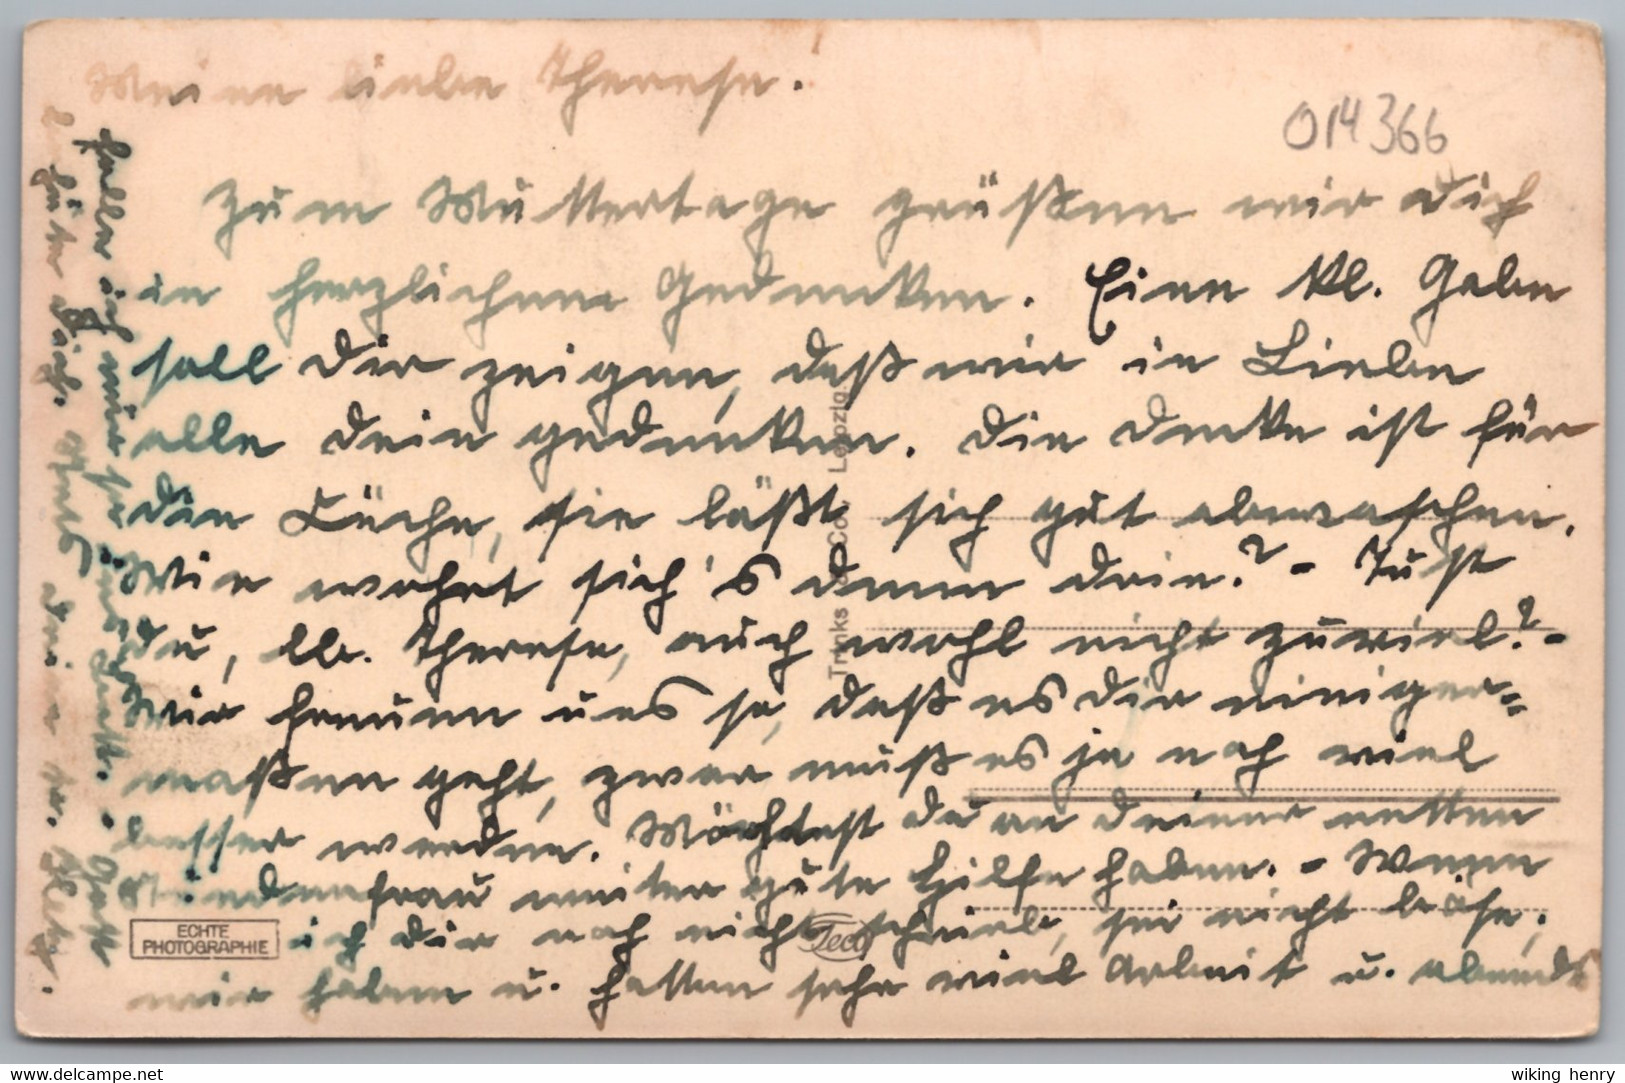 Meine liebe Therese.
014366
Zum Muttertage grüßen wir dich
in herzlichem Gedenken. Eine kl. Gabe
soll dir zeigen, daß wir in Liebe
alle dein gedenken. Die Decke ist für
die Küche, sie läßt sich gut abwaschen.
Wie wohnt sich's denn drin? - Tust
du, lb. Therese, auch wohl nicht zuviel? -
Wir freuen uns so, daß es dir einiger=
maßen geht, zwar muß es ja noch viel
besser werden. Möchtest du an deiner netten
Stundenfrau weiter gute Hilfe haben. - Wenn
ich dir noch nicht schrieb, sei nicht böse,
wir haben u. hatten sehr viel Arbeit u. abends
falle ich nur so ins Bett. - Gott
behüte dich. Stets deine tr.
Trinks & Co., Leipzig
ECHTE
PHOTOGRAPHIE
Teco
www.delcampe.net
wiking_henry